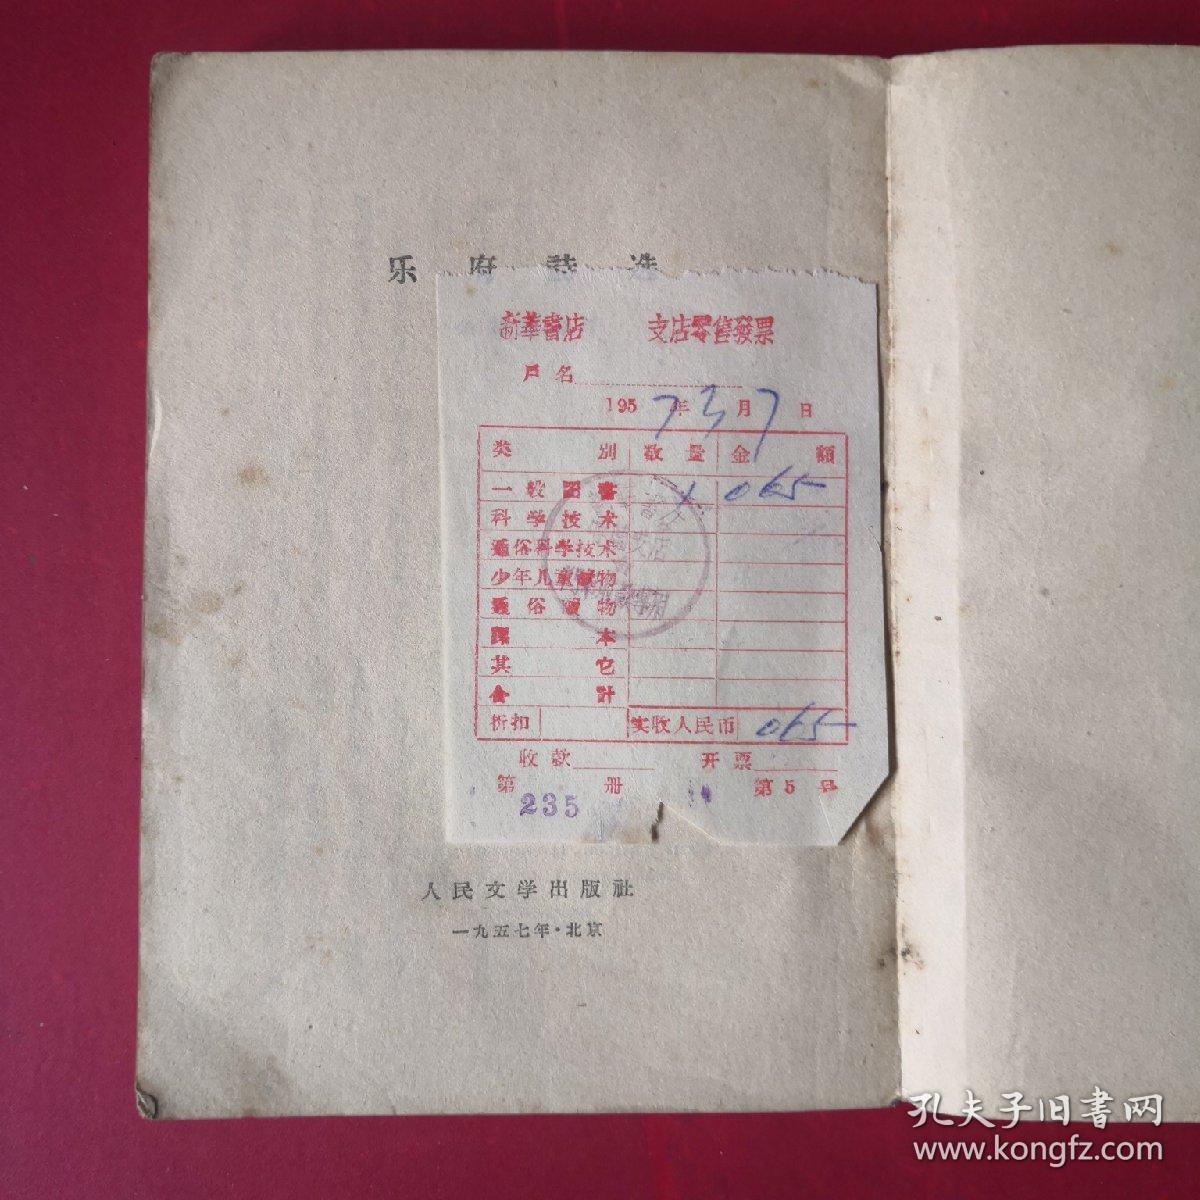 乐府诗选
新華書店 支店零售發票
戶名
1957年3月7日
类別 数量 金額
一般圖書 1 065
科学技术
通俗科学技术
少年儿童讀物
通俗讀物
課本
其它
合計
折扣 实收人民币 065
收款 开票
第 册 第5号
235
人民文学出版社
一九五七年·北京
孔夫子旧書网
www.kongfz.com